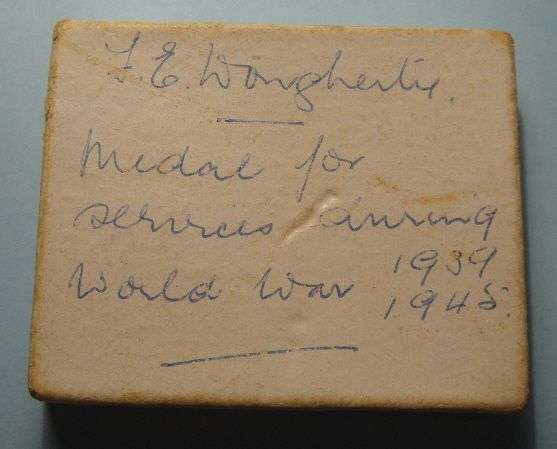 F.E. Dougherty.
Medal for
services during
World War 1939
1945.